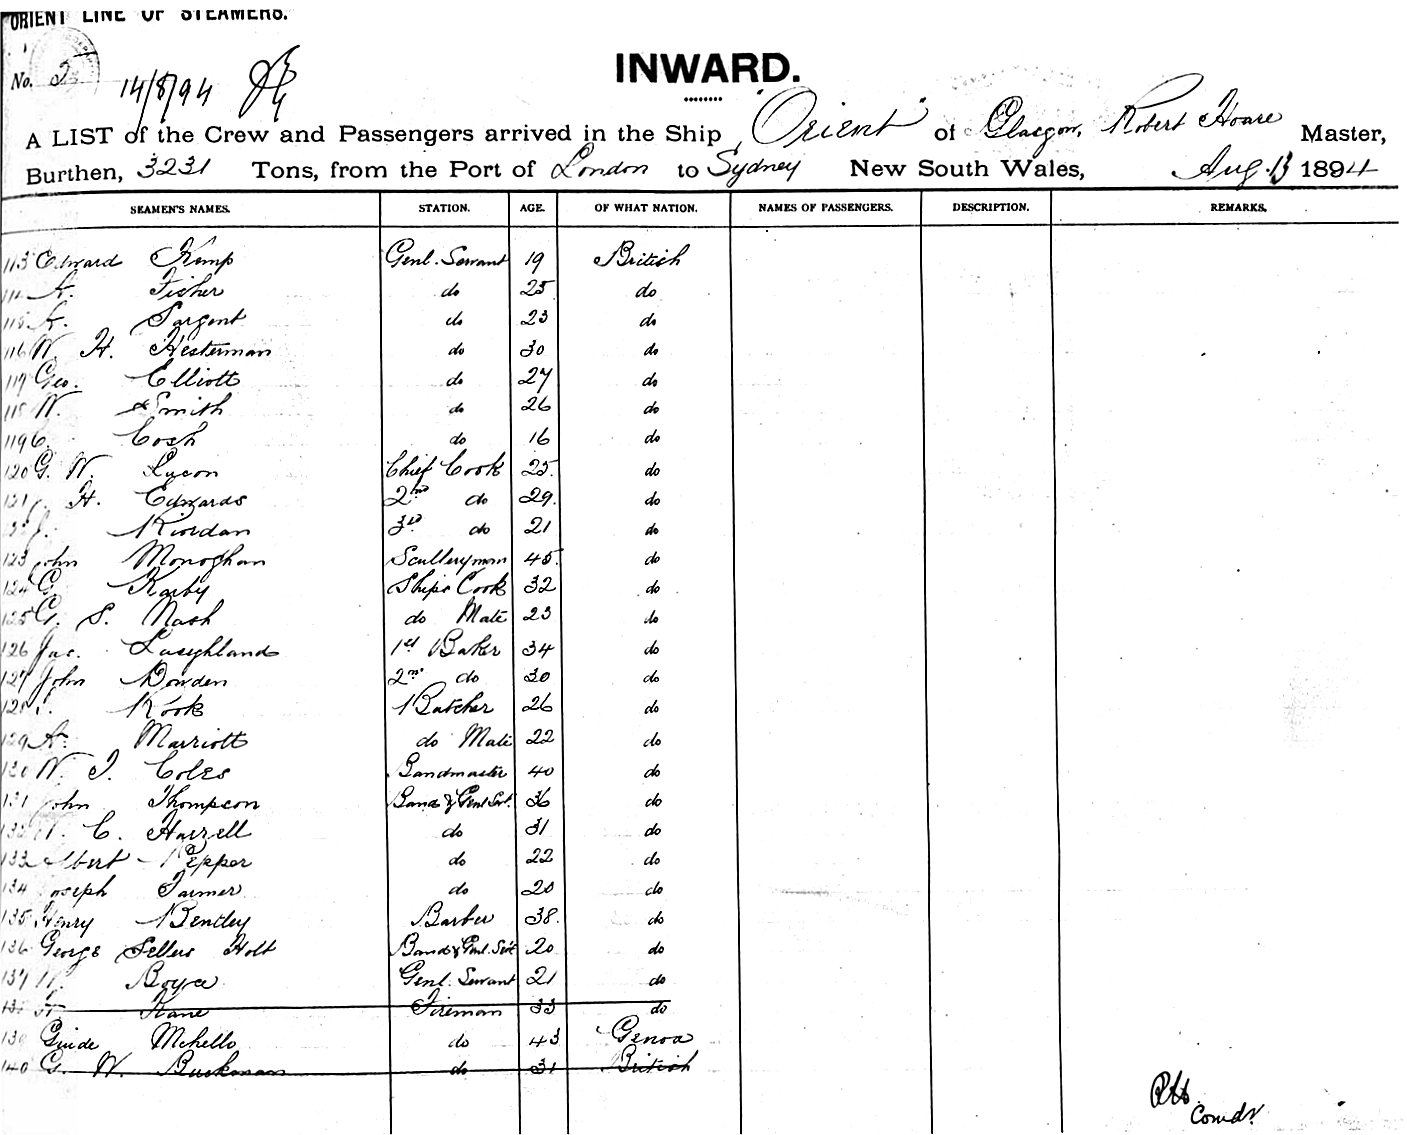 ORIENT LINE OF STEAMERS.
No. 2
14/8/94
INWARD.
A LIST of the Crew and Passengers arrived in the Ship "Orient" of Glasgow, Robert Hoare Master,
Burthen, 3231 Tons, from the Port of London to Sydney New South Wales, Aug. 13 1894
SEAMEN'S NAMES. STATION. AGE. OF WHAT NATION. NAMES OF PASSENGERS. DESCRIPTION. REMARKS.
113 Edward Kemp Genl. Servant 19 British
114 A. Fisher do 25 do
115 A. Sargent do 23 do
116 W. H. Hesterman do 30 do
117 Geo. Elliott do 27 do
118 W. Smith do 26 do
119 C. Cosh do 16 do
120 G. W. Lucon Chief Cook 25 do
121 H. Edwards 2nd do 29 do
122 J. Riordan 3rd do 21 do
123 John Monoghan Sculleryman 45 do
124 G. Karby Ships Cook 32 do
125 G. S. Nash do Mate 23 do
126 Jas. Laughland 1st Baker 34 do
127 John Bowden 2nd do 30 do
128 Kook Butcher 26 do
129 A. Marriott do Mate 22 do
130 W. J. Coles Bandmaster 40 do
131 John Thompson Band & Genl Svt. 36 do
132 C. Harrell do 31 do
133 Albert Pepper do 22 do
134 Joseph Farmer do 20 do
135 Henry Bentley Barber 38 do
136 George Sellers Holt Band & Genl. Svt 20 do
137 W. Boyce Genl. Servant 21 do
138 Kane Fireman 33 do
139 Guide Mchello do 43 Genoa
140 G. W. Buckman do 31 British
RH
Comdr